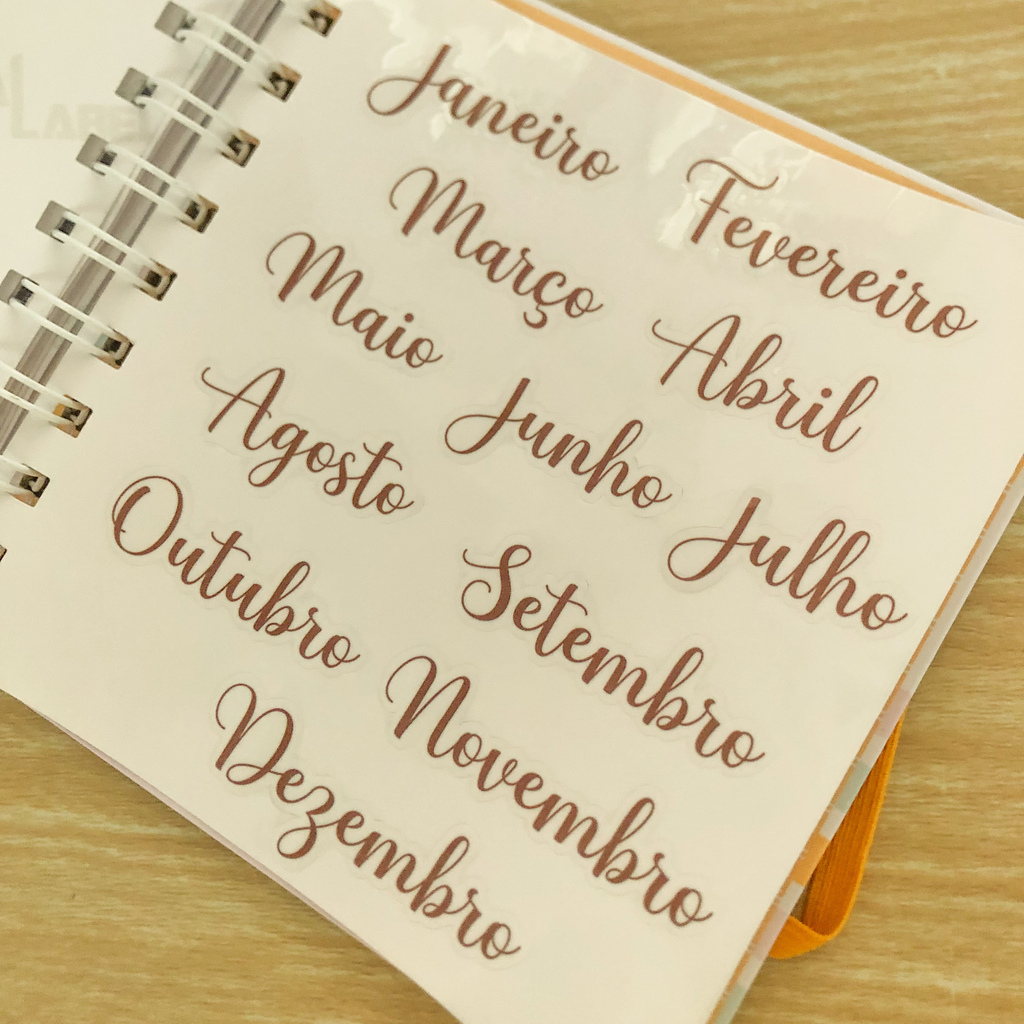 Janeiro Fevereiro
Março Abril
Maio Junho Julho
Agosto Setembro
Outubro Novembro
Dezembro